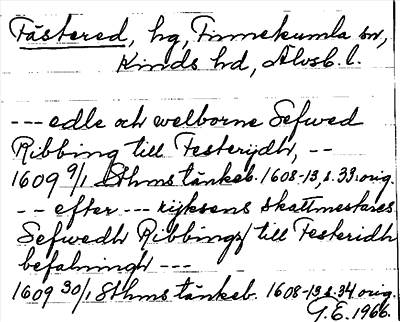 Fästered, hg, Finnekumla sn,
Kinds hd, Älvsb. l.
--- edle och welborne Sefwed
Ribbing till Festerydh, --
1609 9/1 Sthms tänkeb. 1608-13, s. 33. orig.
-- efter --- rijksens skattmestares
Sefwedh Ribbings till Festeridh
befalningh ---
1609 30/1 Sthms tänkeb. 1608-13 s. 34 orig.
G.E. 1966.